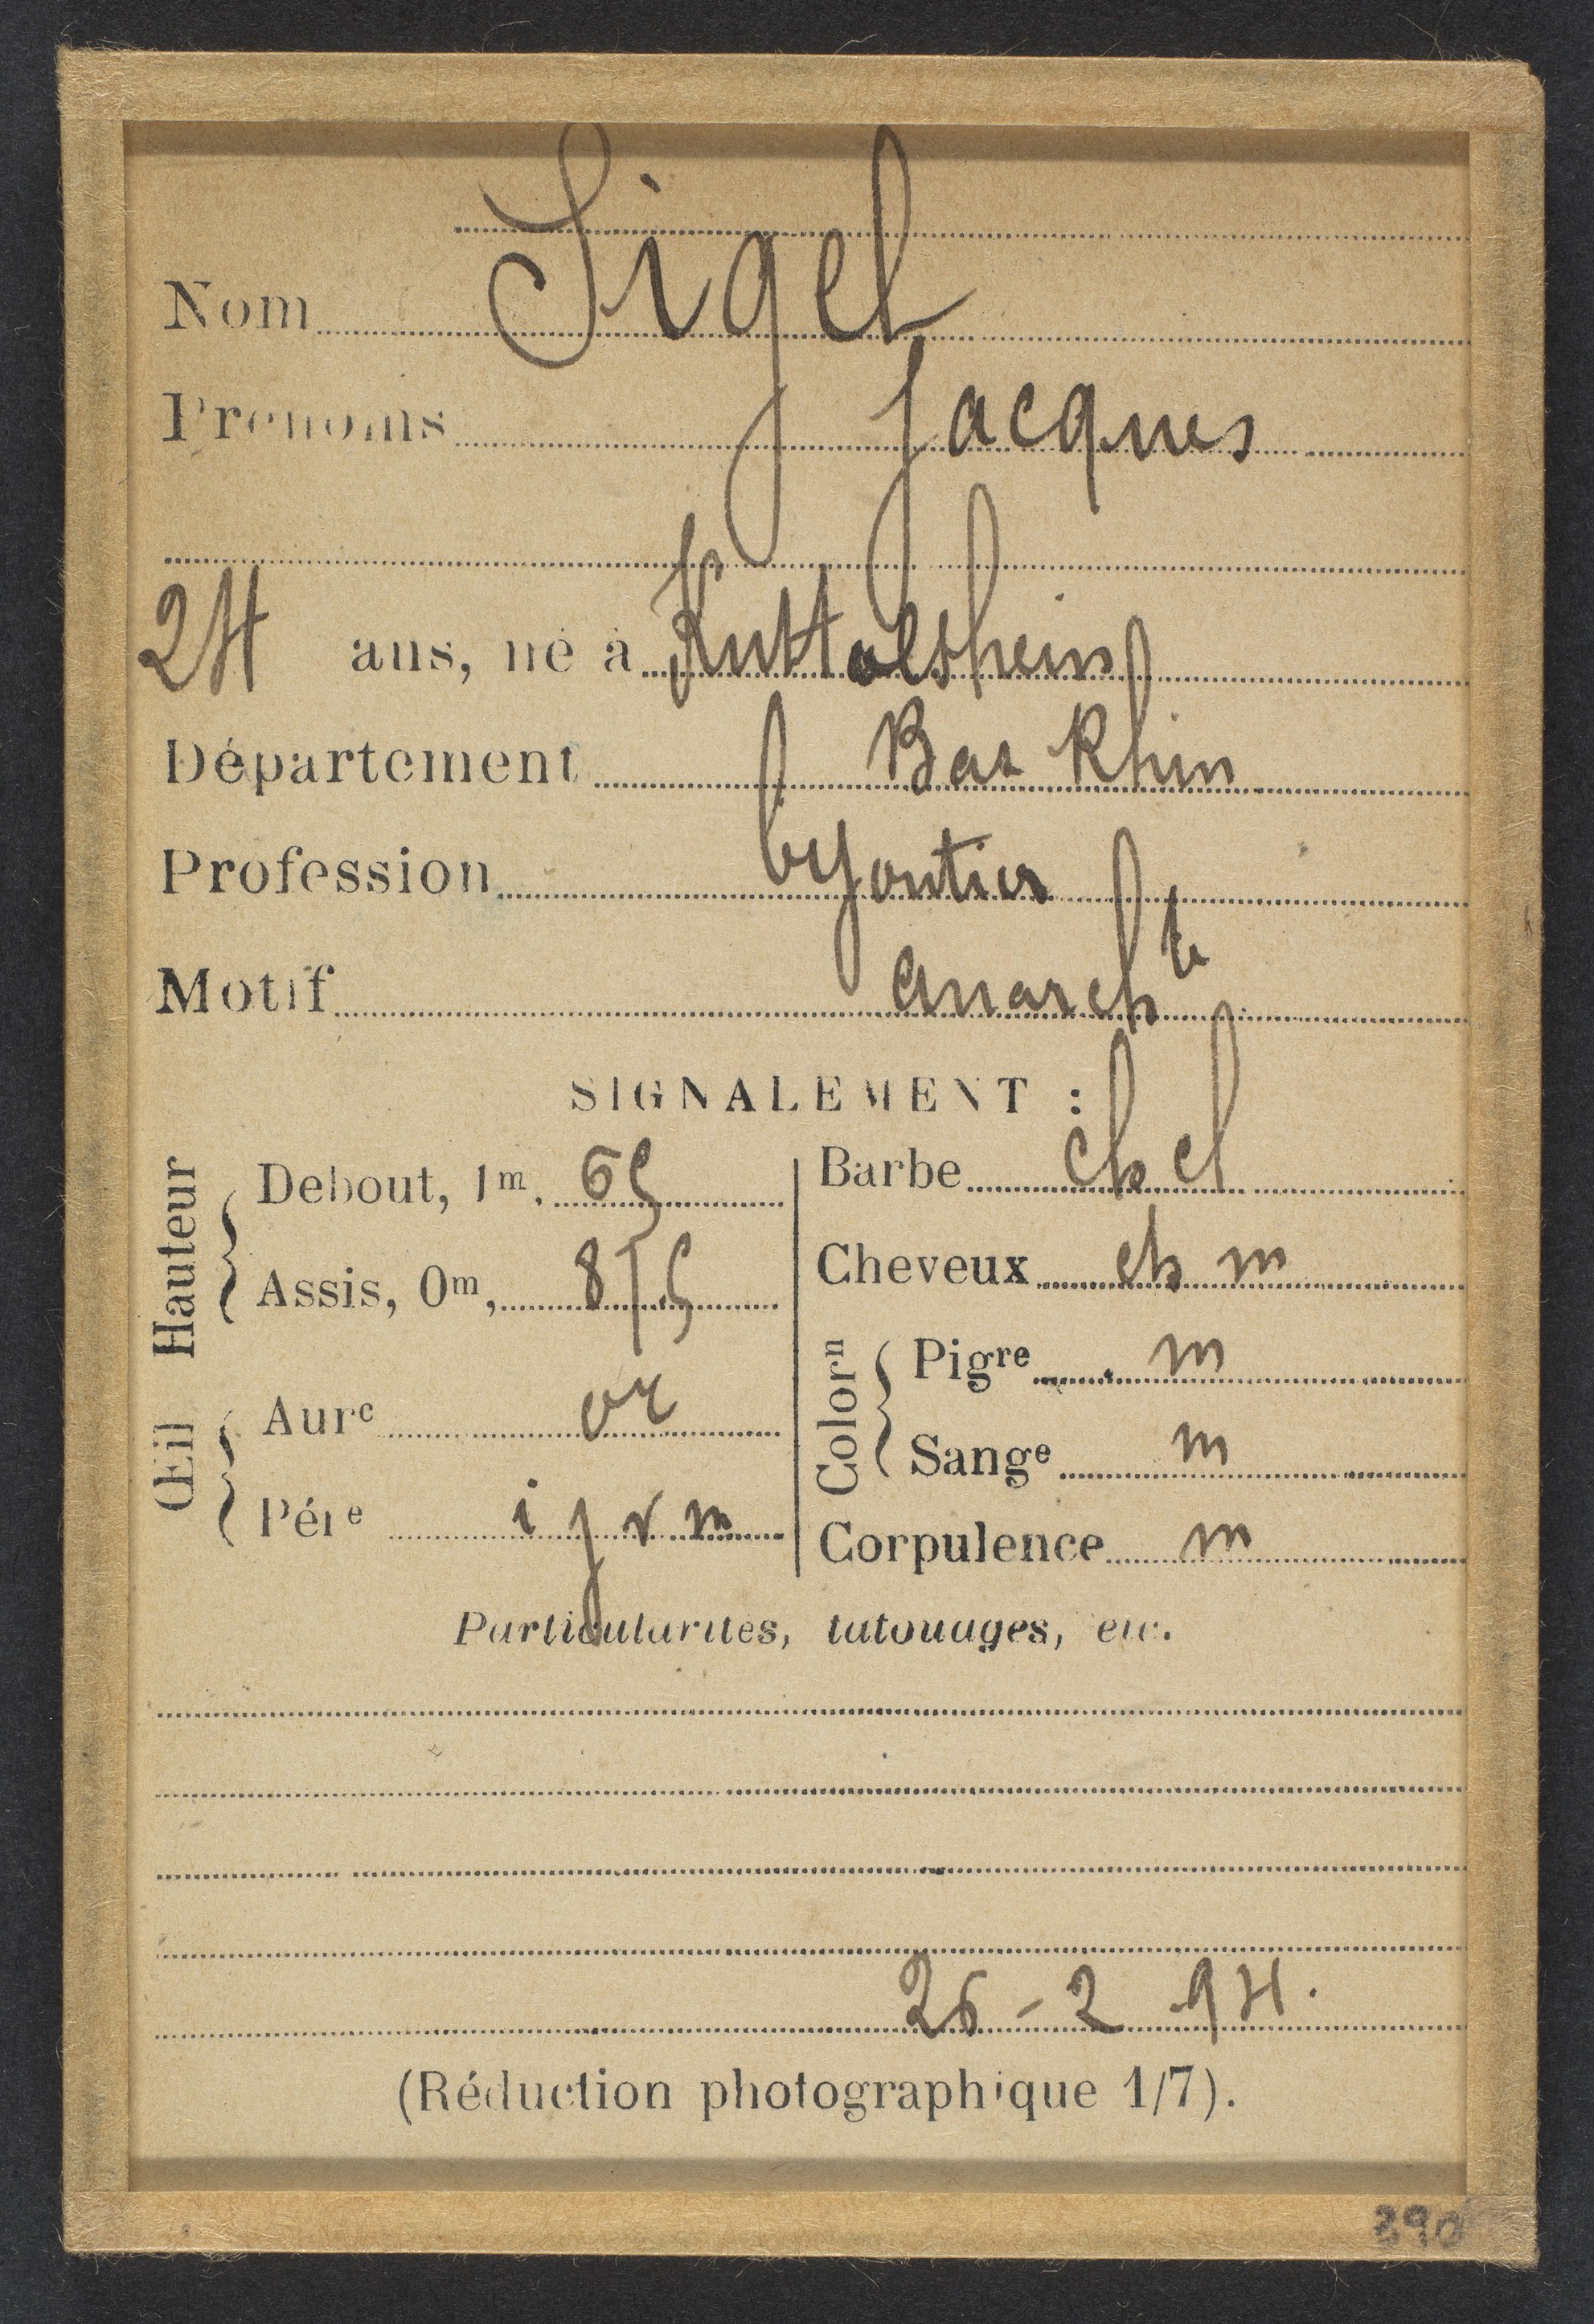 Nom Sigel
Prénoms Jacques
24 ans, né à Kuttolsheim
Département Bas Rhin
Profession bijoutier
Motif anarch te
SIGNALEMENT :
Hauteur
Debout, 1m, 65
Assis, 0m,
Œil
Aurᵉ or
Périᵉ i j v m
Barbe ch cl
Cheveux ch m
Colorⁿ
Pigʳᵉ m
Sangᵉ m
Corpulence m
Particularités, tatouages, etc.
26 - 2 94.
(Réduction photographique 1/7).
390